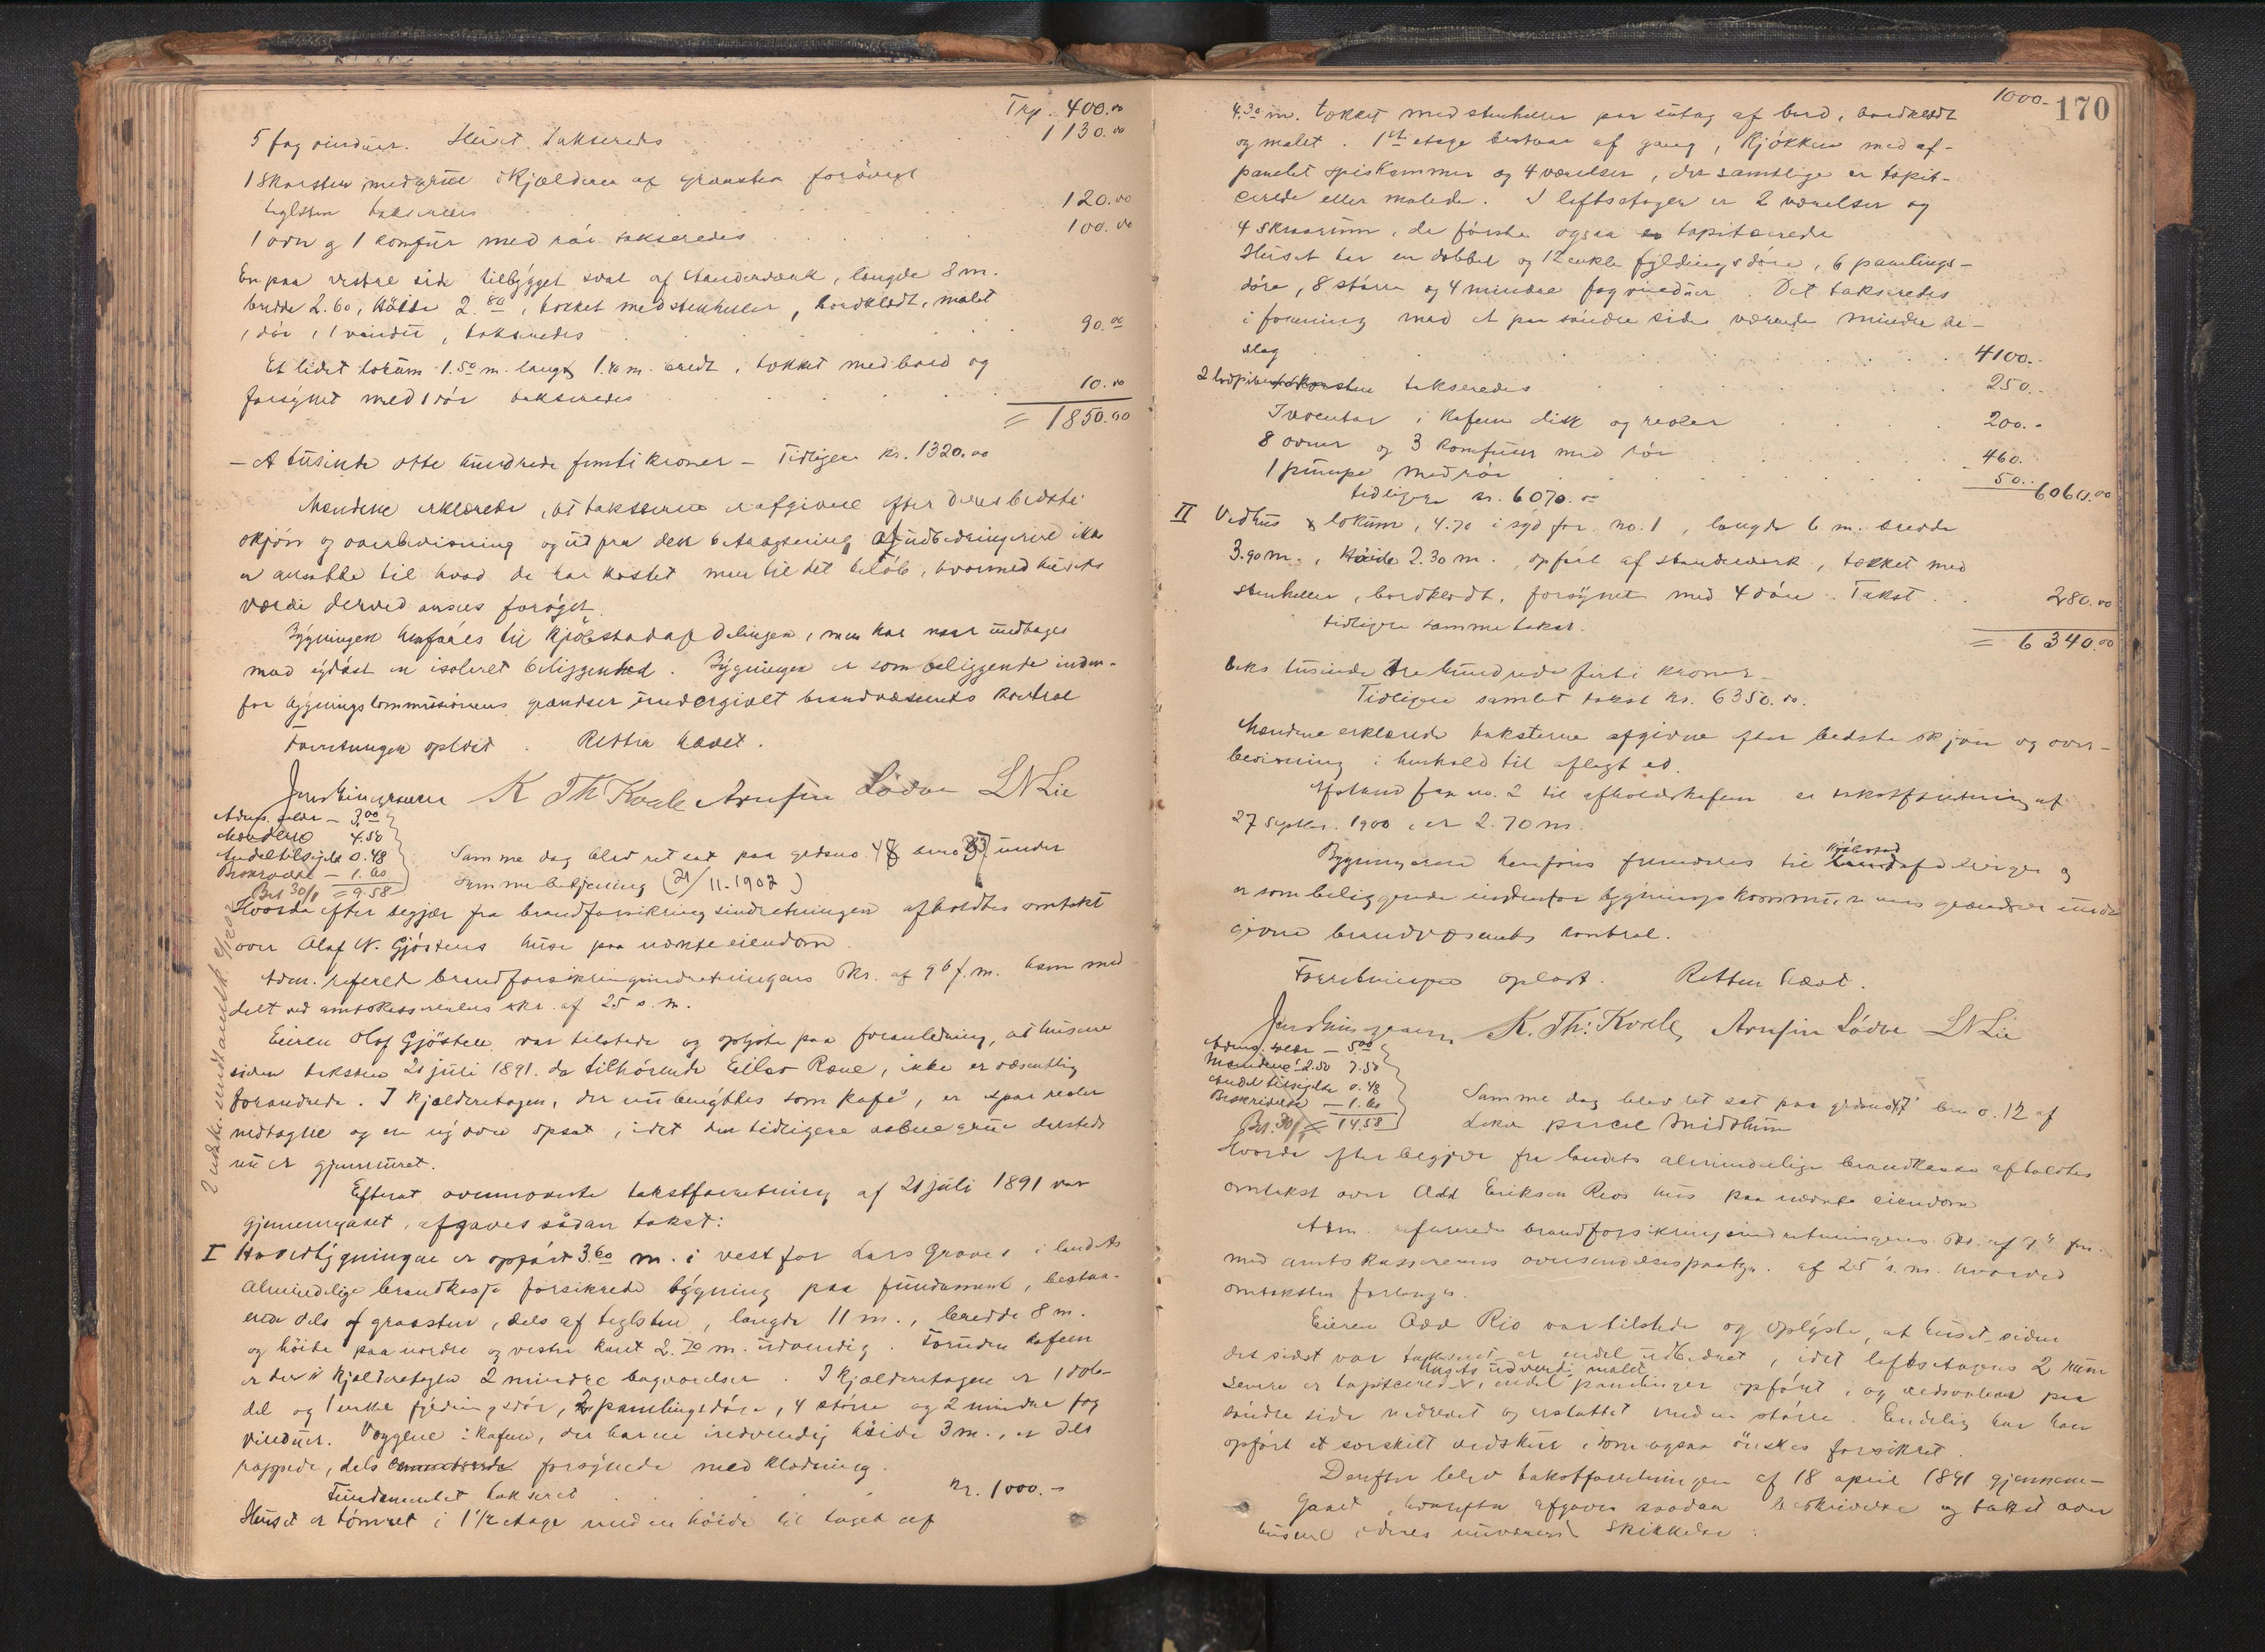 Trp. 400.00
5 fag vinduer. Huset takseredes 1130.00
1 skorsten med grue i kjælderen af graasten forøvrigt
teglsten takseredes 120.00
1 ovn og 1 komfur med rør takseredes 100.00
En paa vestre side tilbygget sval af standerværk, længde 8 m.
bredde 2.60, høide 2.80, tækket med stenheller, bordklædt, malet
1 dør, 1 vindu, takseredes 90.00
Et lidet lokum 1.50 m. langt, 1.40 m. bredt, tækket med bord og
forsynet med 1 dør takseredes 10.00
= 1850.00
– Et tusinde otte hundrede femti kroner – Tidligere kr. 1320.00
Mændene erklærede, at taksterne er afgivne efter deres bedste
skjøn og overbevisning og ud fra den betragtning at udbedringerne ikke
er ansatte til hvad de har kostet men til det beløb, hvormed husets
værdi derved ansees forøget.
Bygningen henføres til kjøbstadafdelingen, men har naar undtages
mod sydøst en isoleret beliggenhed. Bygningen er som beliggende inden-
for bygningskommissionens grændser undergivet brandvæsenets kontrol
Forretningen oplæst. Retten hævet.
K Th Kvale Arnfin Lødve LN Lie
Adms. gebr – 3.00
Mændene 4.50
Andel tilsigelse 0.48
Beskrivelse – 1.60
Bet 30/11 = 9.58
Samme dag blev ret sat paa gadeno. 48 brno 37 under
samme betjening (21/11-1902)
Hvorda efter begjær fra brandforsikringsindretningen afholdtes omtakst
over Olaf N. Gjøstens huse paa nævnte eiendom.
Adm. refererte brandforsikringsindretningens skr. af 9de f. m. ham med
delt ved amtskassererens skr. af 25 s. m.
Eieren Olaf Gjøsten var tilstede og oplyste paa foranledning, at husene
siden taksten 21 juli 1891. da tilhørende Eilev Røne, ikke er væsentlig
forandrede. I kjælderetagen, der nu benyttes som kafé, er et par reoler
nedtagne og en ny ovn opsat, idet den tidligere aabne grue dersteds
nu er gjenmuret.
Efterat ovennævnte takstforretning af 21 juli 1891 var
gjennemgaaet, afgaves sådan takst:
I Hovedbygningen er opført 3.60 m. i vest for Lars Graves i landets
almindelige brandkasse forsikrede bygning paa fundament, bestaa-
ende dels af graasten, dels af teglsten, længde 11 m., bredde 8 m.
og høide paa nordre og vestre kant 2.70 m. udvendig. Foruden kafeen
er der i kjælderetagen 2 mindre bagværelser. I kjælderetagen er 1 dob-
bel og 1 enkel fyldingsdør, 2 panelingsdøre, 4 større og 2 mindre fag
vinduer. Væggene i kafeen, der har en indvendig høide 3 m., er dels
rappede, dels forsynede med klædning.
Fundamentet takseret Kr. 1000.–
Huset er tømret i 1 1/2 etage med en høide til taget af
1000.–
170
4.30 m. tækket med stenheller paa sutag af bord, bordklædt
og malet. 1ste etage bestaar af gang, kjøkken med af-
panelet spiskammer og 4 værelser, der samtlige er tapit-
cerede eller malede. I loftsetagen er 2 værelser og
4 skraarum, de første ogsaa tapitcerede
Huset har en dobbel og 12 enkle fyldingsdøre, 6 panelings-
døre, 8 større og 4 mindre fag vinduer. Det takseredes
i forening med et paa søndre side værende mindre be-
slag 4100.–
takseredes 250.–
Inventar i kafeen disk og reoler 200.–
8 ovner og 3 komfurer med rør 460.–
1 pumpe med rør 50.– 6060.00
tidligere kr. 6070.00
II Vedhus & lokum, 4.70 i syd for no. 1, længde 6 m. bredde
3.90 m., høide 2.30 m., opført af standerværk, tækket med
stenheller, bordklædt, forsynet med 4 døre. Takst 280.00
tidligere samme takst.
= 6340.00
Seks tusinde tre hundrede firti kroner –
Tidligere samlet takst kr. 6350.00.
Mændene erklærede taksterne afgivne efter bedste skjøn og over-
bevisning i henhold til aflagt ed.
Afstand fra no. 2 til afholdskafeen se takstforretning af
27 Septbr. 1900, er 2.70 m.
Bygningerne henføres fremdeles til kjøbstadafdelingen og
er som beliggende indenfor bygningskommissionens grændser under
givne brandvæsenets kontrol.
Forretningen oplæst. Retten hævet.
K. Th: Kvale Arnfin Lødve LN Lie
Adms. gebr – 5.00
Mændene: 2.50 7.50
Andel tilsigelse 0.48
Beskrivelse – 1.60
Bet. 30/11 = 14.58
Samme dag blev ret sat paa grdsno 47 brno. 12 af
parcel Midthun
Hvorda efter begjær fra landets almindelige brandkasse afholdtes
omtakst over Odd Eriksen Rios hus paa nævnte eiendom
Adm. refererede brandforsikringsindretningens skr. af 9de f. m.
med amtskassererens oversendelsespaategn. af 25 s. m. hvorved
omtaksten forlanges.
Eieren Odd Rio var tilstede og oplyste, at huset siden
det sidst var takseret er endel udbedret, idet loftsetagens 2 rum
husets udvendig malet
senere er tapitceredes, endel panelinger opført, og vedsvalen paa
søndre side nedrevet og erstattet med en større. Endelig har han
opført et særskilt vedskur, som ogsaa ønskes forsikret.
Derefter blev takstforretningen af 18 april 1891 gjennem-
gaaet, hvorefter afgaves saadan beskrivelse og takst over
husene i deres nuværende skikkelse: